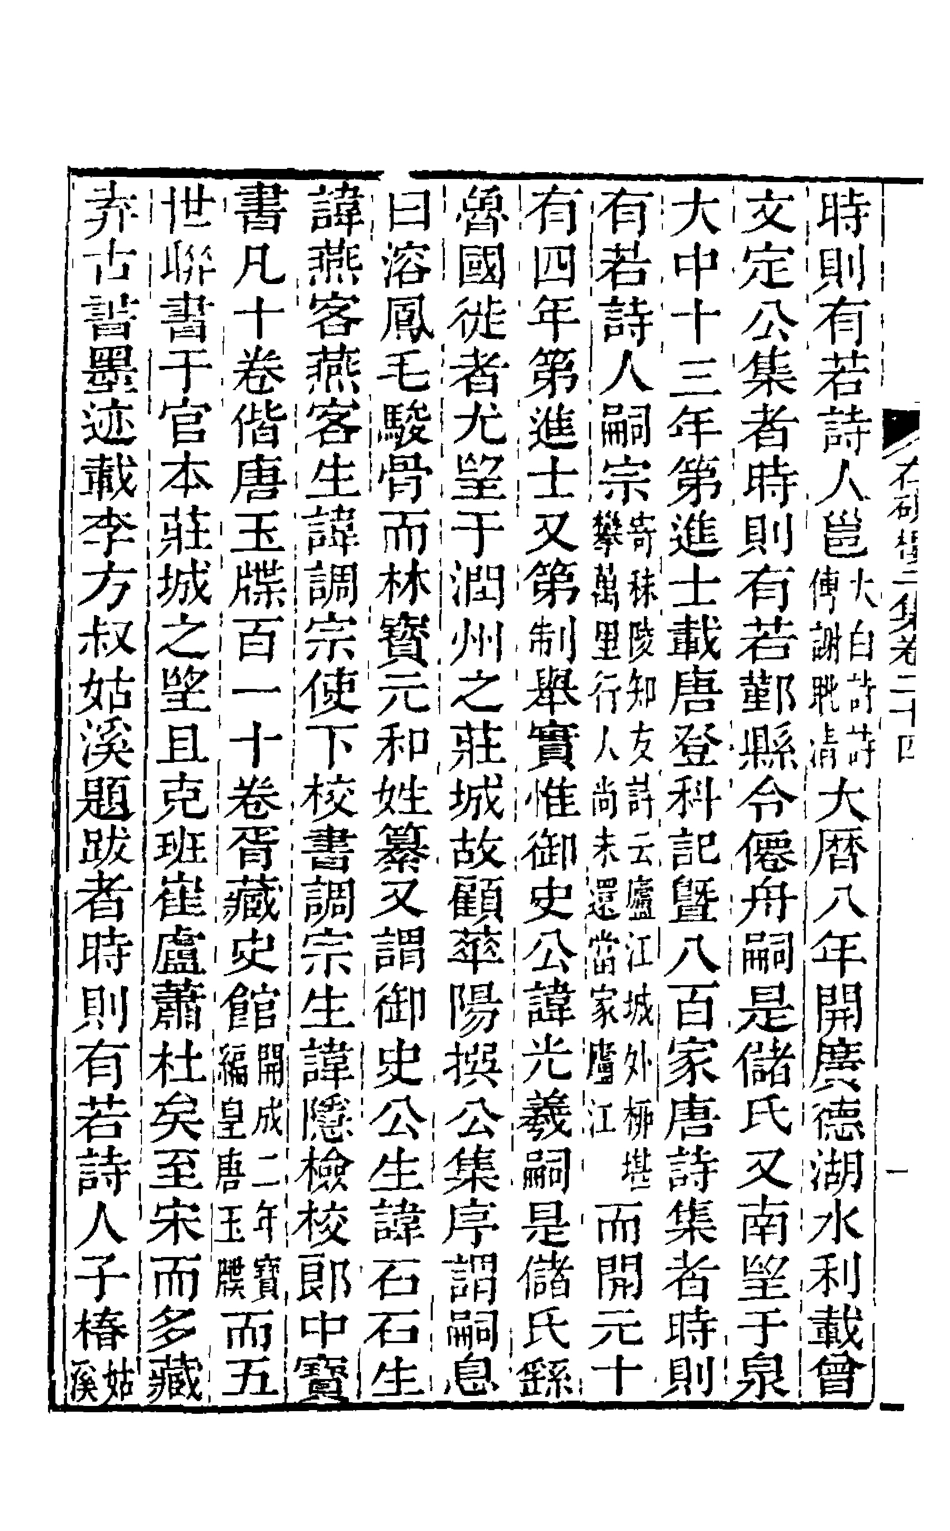 時則有若詩人邕太白詩詩傅謝眺清大曆八年開廣德湖水利載曾
文定公集者時則有若鄞縣令僊舟嗣是儲氏又南望于泉
大中十三年第進士載唐登科記曁八百家唐詩集者時則
有若詩人嗣宗寄秣陵知友詩云廬江城外柳堪攀萬里行人尚未還當家廬江而開元十
有四年第進士又第制舉實惟御史公諱光羲嗣是儲氏繇
魯國徙者尤望于潤州之莊城故顧華陽撰公集序謂嗣息
曰溶鳳毛駿骨而林寶元和姓纂又謂御史公生諱石石生
諱燕客燕客生諱調宗使下校書調宗生諱隱檢校郎中寶
書凡十卷偕唐玉牒百一十卷胥藏史館開成二年寶編皇唐玉牒而五
世聯書于官本莊城之望且克班崔盧蕭杜矣至宋而多藏
弆古書墨迹載李方叔姑溪題跋者時則有若詩人子椿姑溪
在硯樓二集卷二十四
一